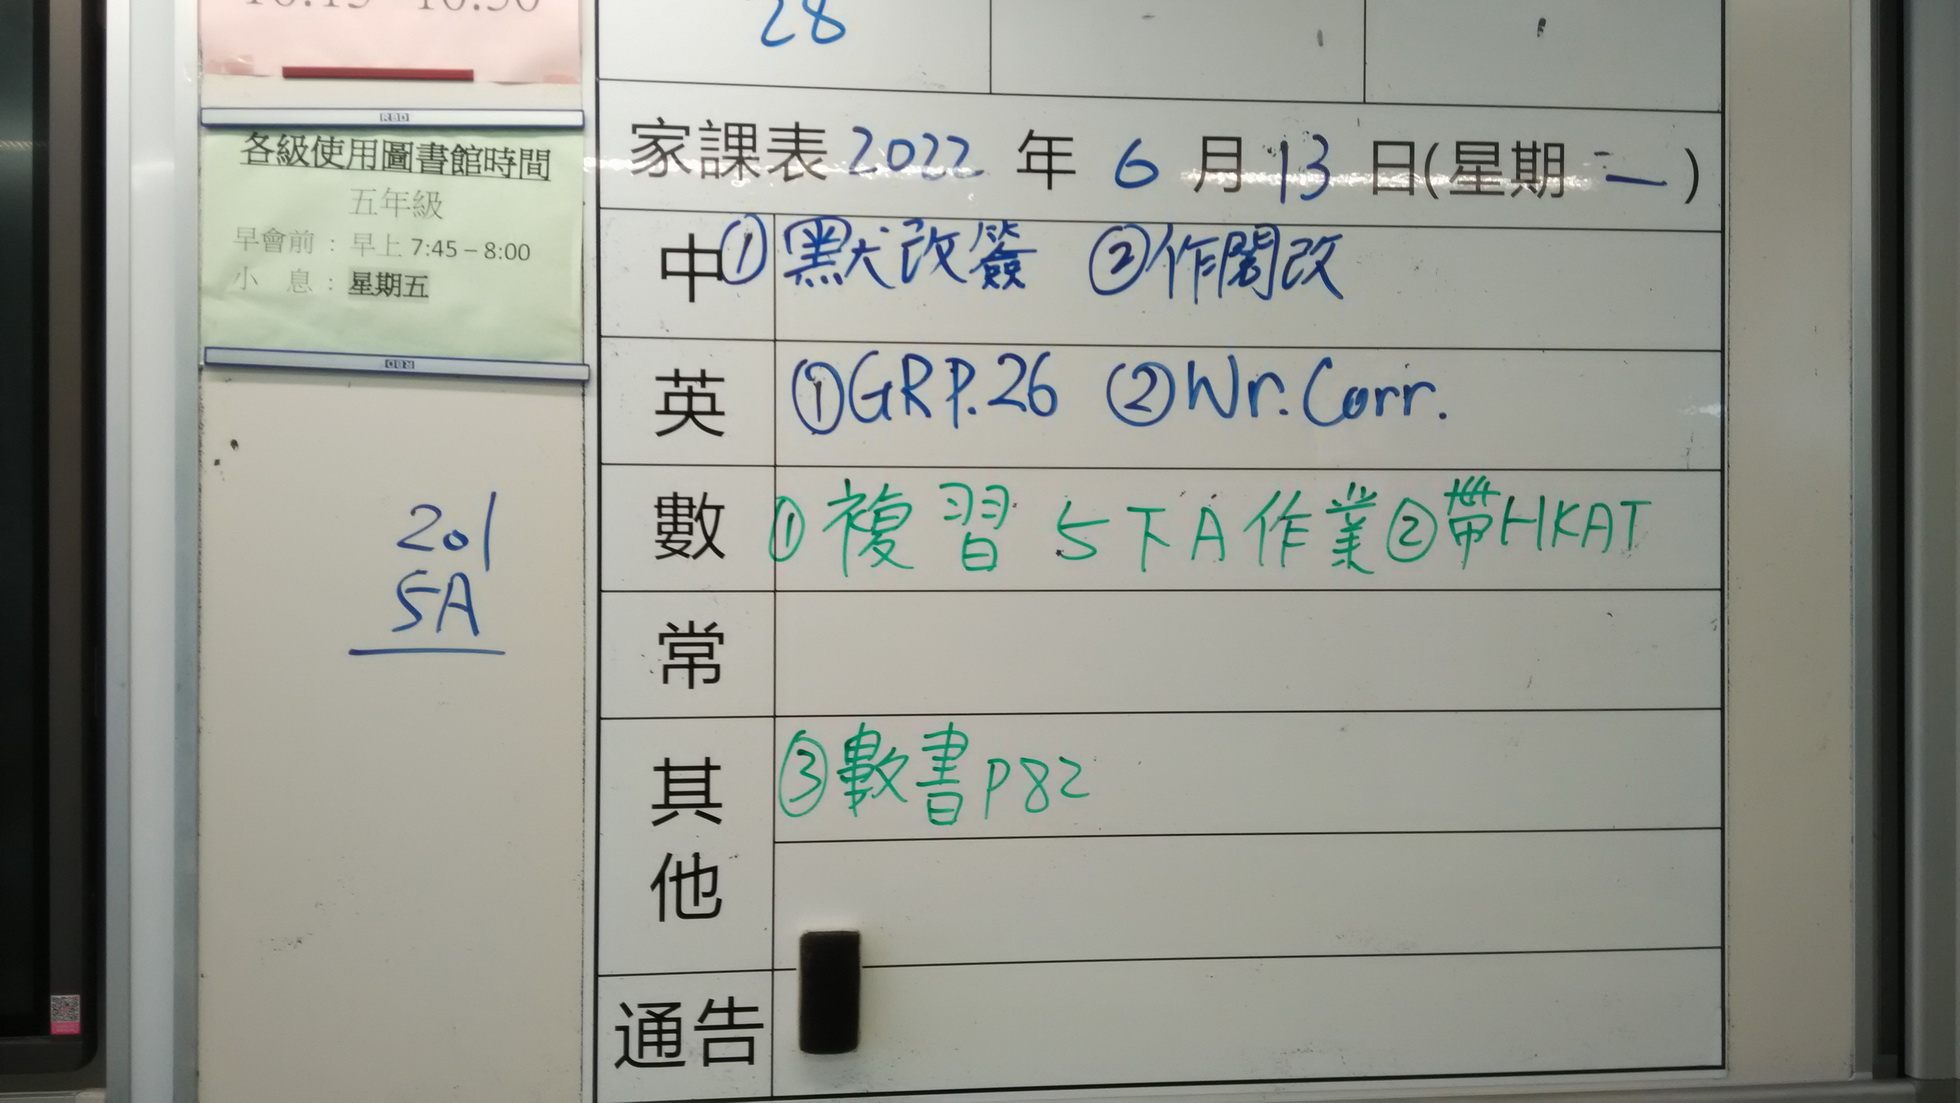 28
RBD
各級使用圖書館時間
五年級
早會前：早上 7:45 – 8:00
小　息：星期五
RBD
201
5A
家課表 2022 年 6 月 13 日(星期 二 )
中 ①默改簽 ②作閱改
英 ①GR P.26 ②Wr. Corr.
數 ①複習 5下A 作業 ②帶HKAT
常
其他 ③數書 P82
通告